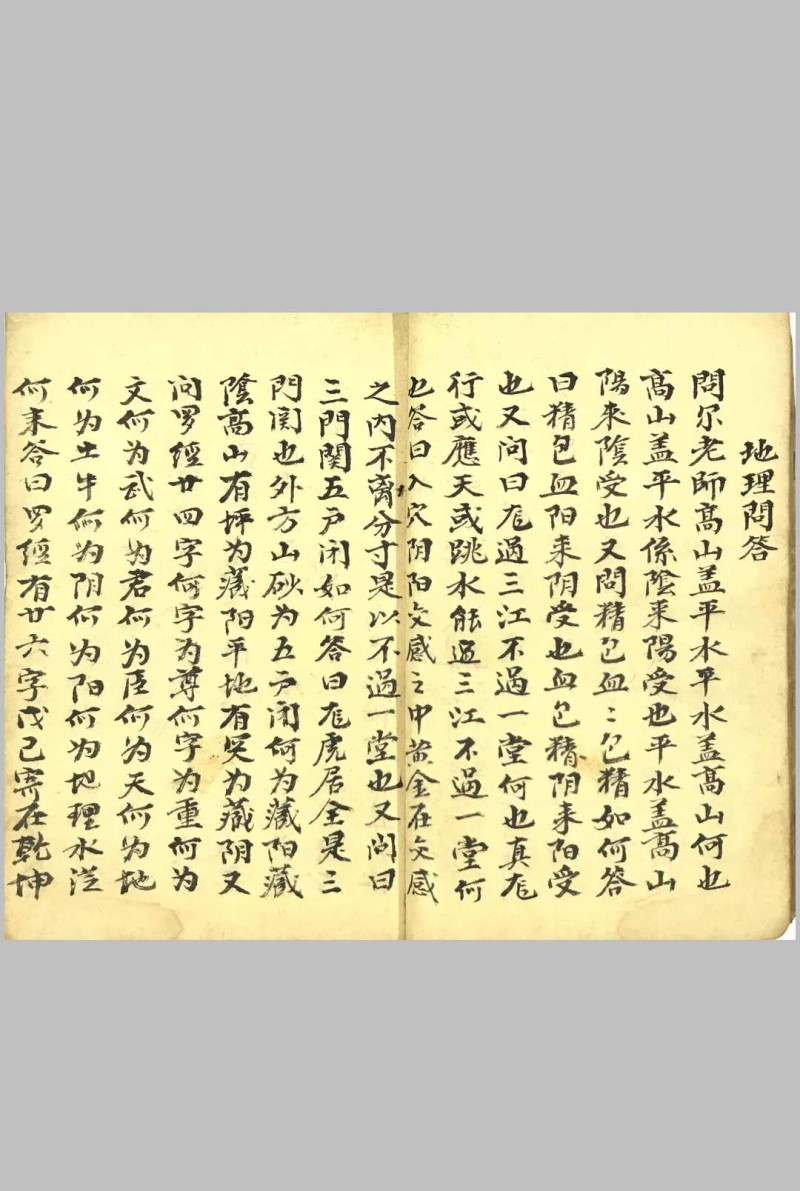 地理問答
問尔老師高山盖平水平水盖高山何也
高山盖平水係陰来陽受也平水盖高山
陽来陰受也又問精包血〻包精如何答
曰精包血阳来阴受也血包精阴来阳受
也又问曰龙過三江不過一堂何也真龙
行或應天或跳水能過三江不過一堂何
也答曰入穴阴阳交感之中黄金在交感
之内不离分寸是以不過一堂也又问曰
三門関五户闭如何答曰龙虎居全是三
門関也外方山砂为五户闭何为藏阳藏
陰高山有坪为藏阳平地有突为藏阴又
问罗經廿四字何字为尊何字为重何为
文何为武何为君何为臣何为天何为地
何为土牛何为阴何为阳何为地理水從
何来答曰罗經有廿六字戊己寄在乾坤